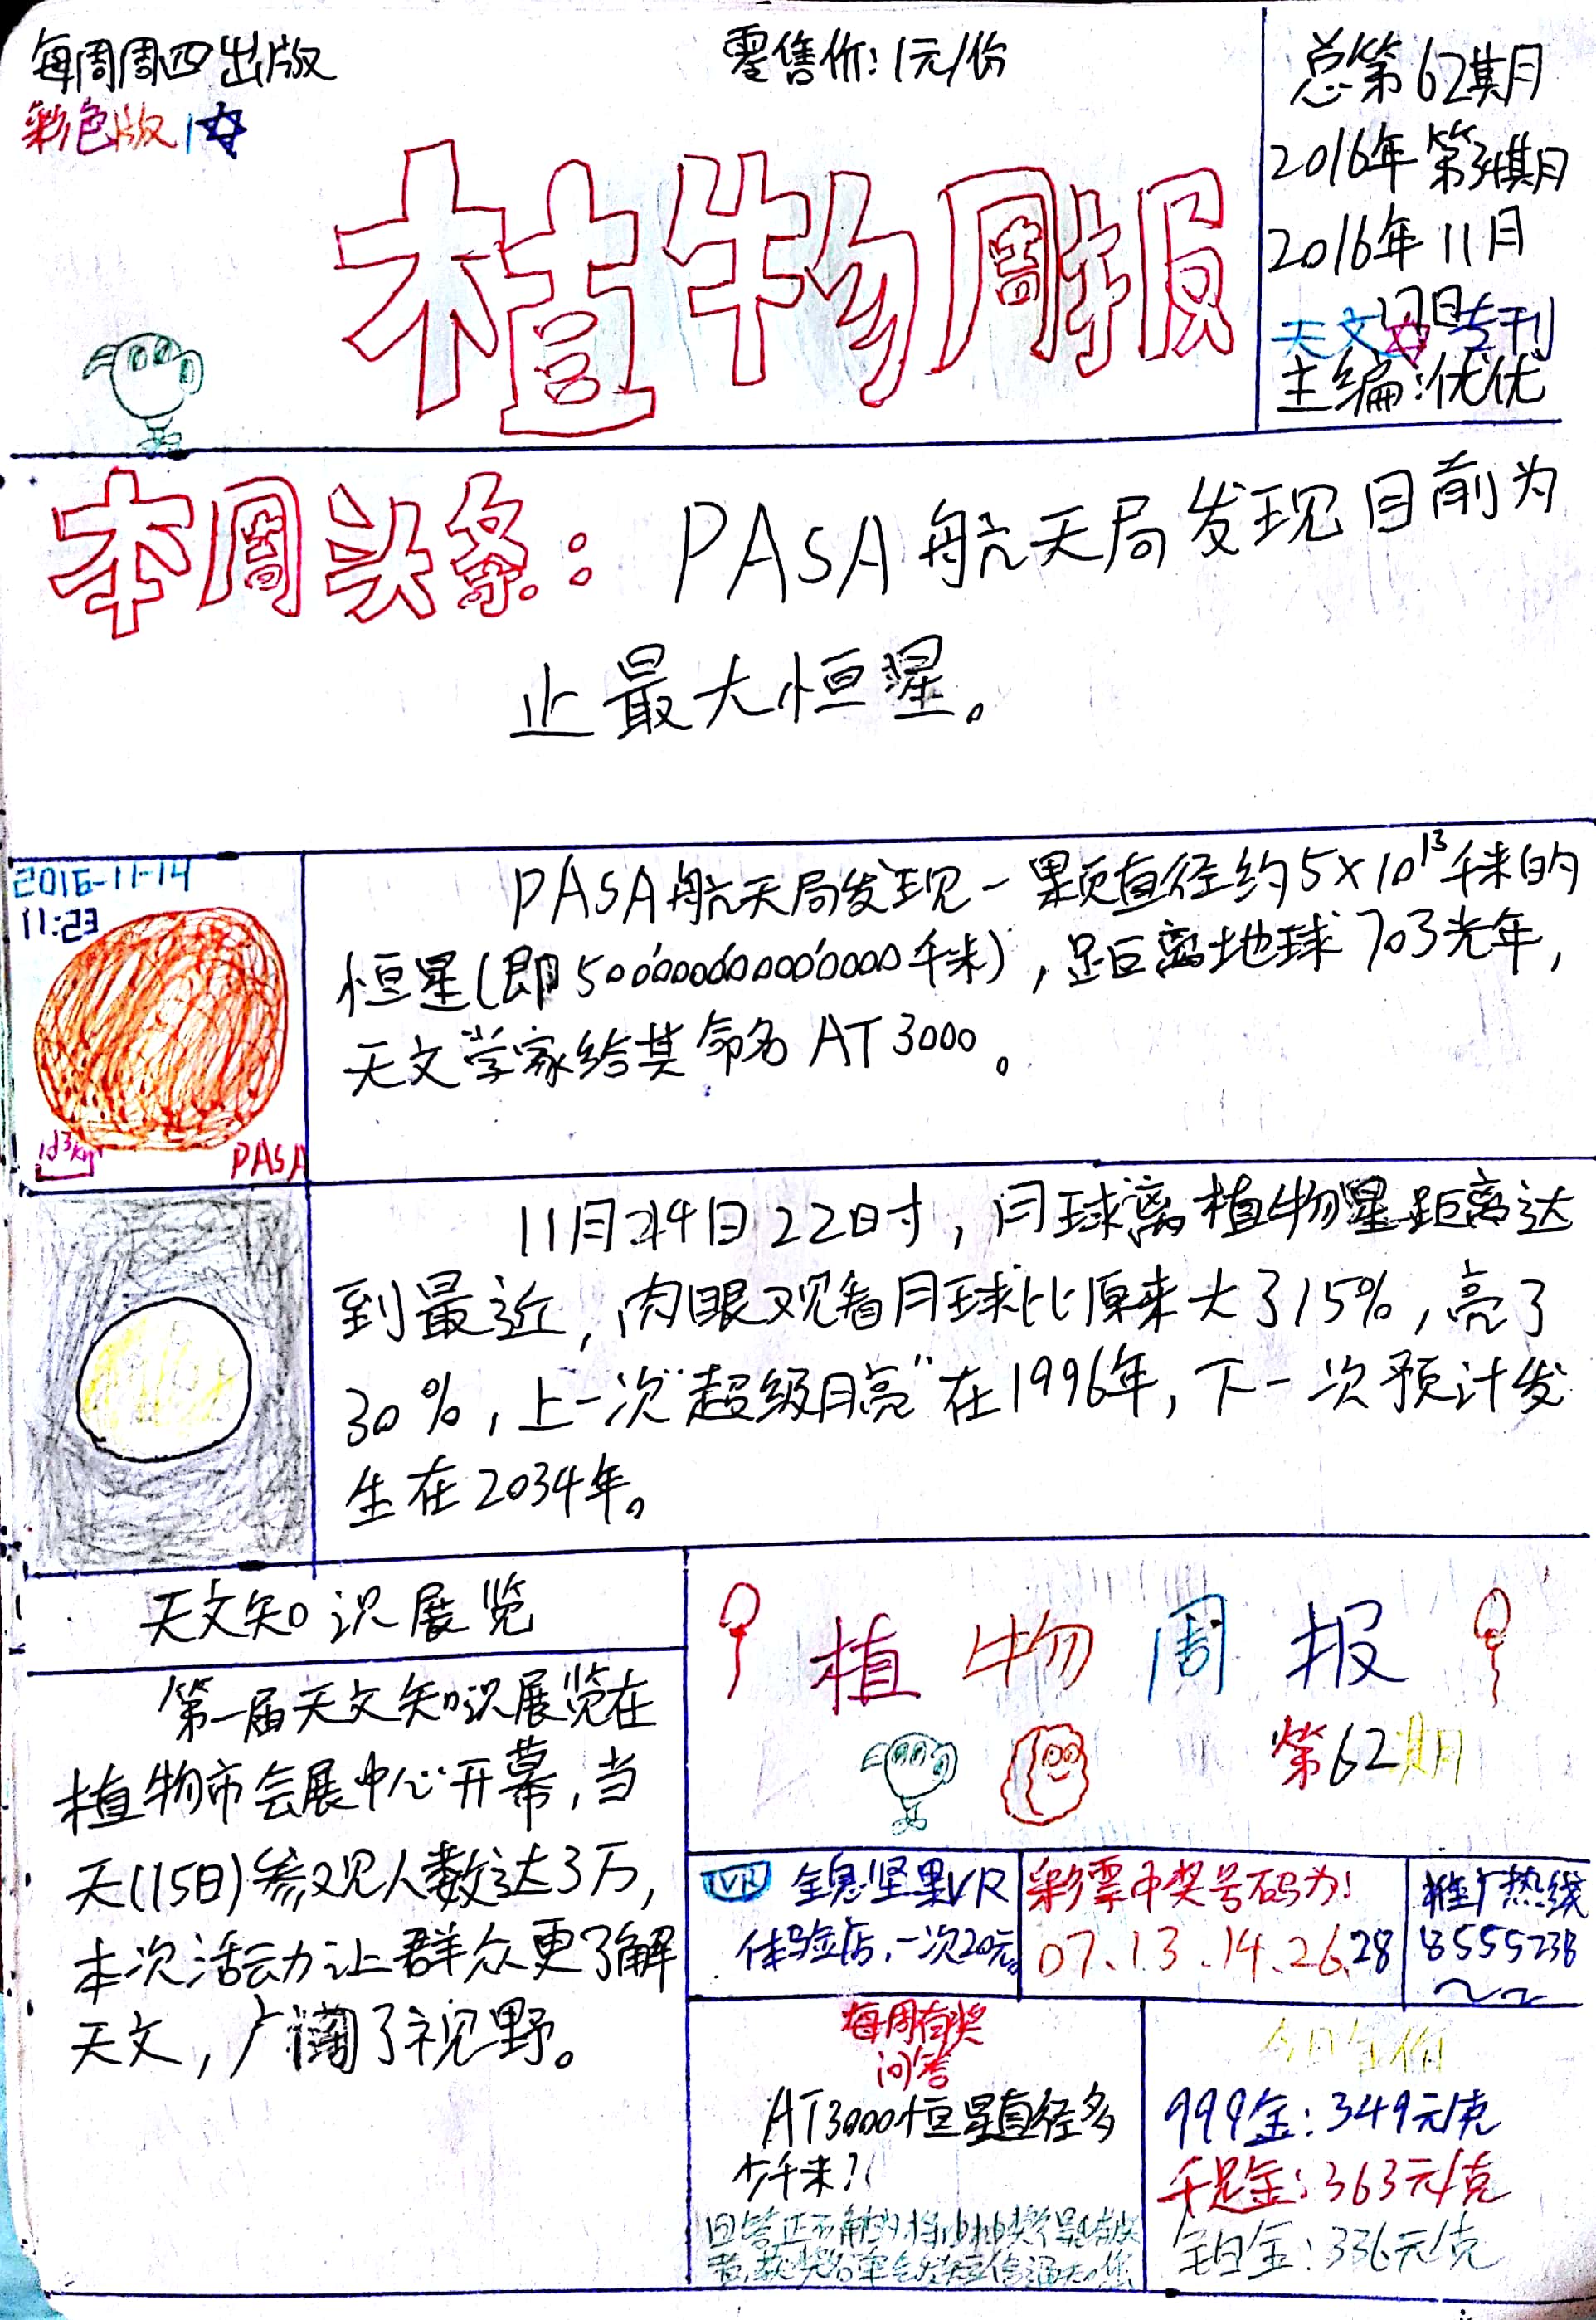 每周周四出版
彩色版1☆
零售价:1元/份
总第62期
2016年第34期
2016年11月
17日
天文☆专刊
主编:优优
植物周报
本周头条:PASA航天局发现目前为
止最大恒星。
2016-11-14
11:23
PASA
PASA航天局发现一颗直径约5×10¹³千米的
恒星(即50000000000000千米),距离地球703光年,
天文学家给其命名AT3000。
11月14日22时,月球离植物星距离达
到最近,肉眼观看月球比原来大了15%,亮了
30%,上一次“超级月亮”在1996年,下一次预计发
生在2034年。
天文知识展览
第一届天文知识展览在
植物市会展中心开幕,当
天(15日)参观人数达3万,
本次活动让群众更了解
天文,广阔了视野。
植物周报
第62期
VR 全息坚果VR
体验店,一次20元。
彩票中奖号码为:
07.13.14.26.28
推广热线
8555238
每周有奖
问答
AT3000恒星直径多
少千米?
今日金价
999金:349元/克
千足金:363元/克
铂金:336元/克